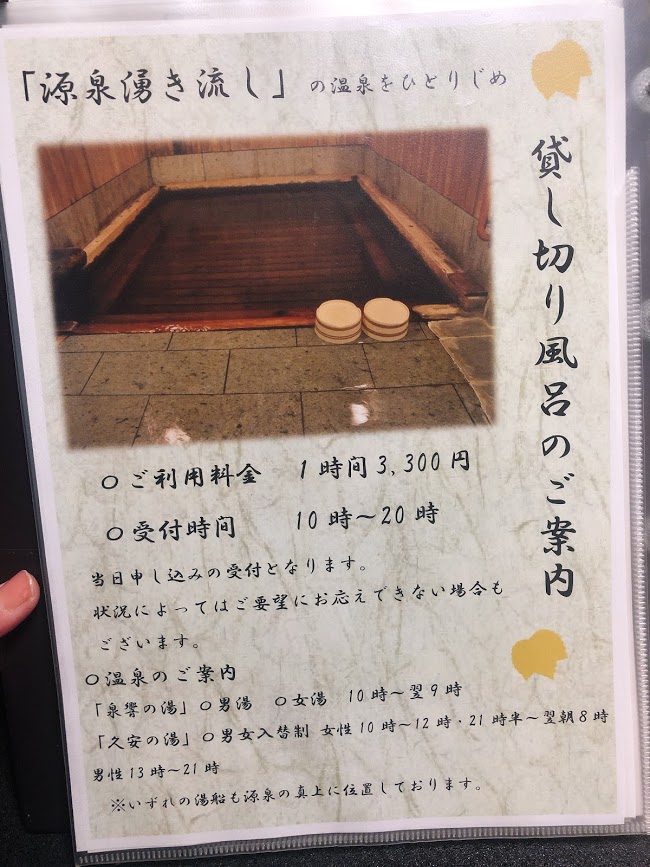 「源泉湧き流し」の温泉をひとりじめ
貸し切り風呂のご案内
○ご利用料金 1時間3,300円
○受付時間 10時～20時
当日申し込みの受付となります。
状況によってはご要望にお応えできない場合も
ございます。
○温泉のご案内
「泉響の湯」○男湯 ○女湯 10時～翌9時
「久安の湯」○男女入替制 女性10時～12時・21時半～翌朝8時
男性13時～21時
※いずれの湯船も源泉の真上に位置しております。